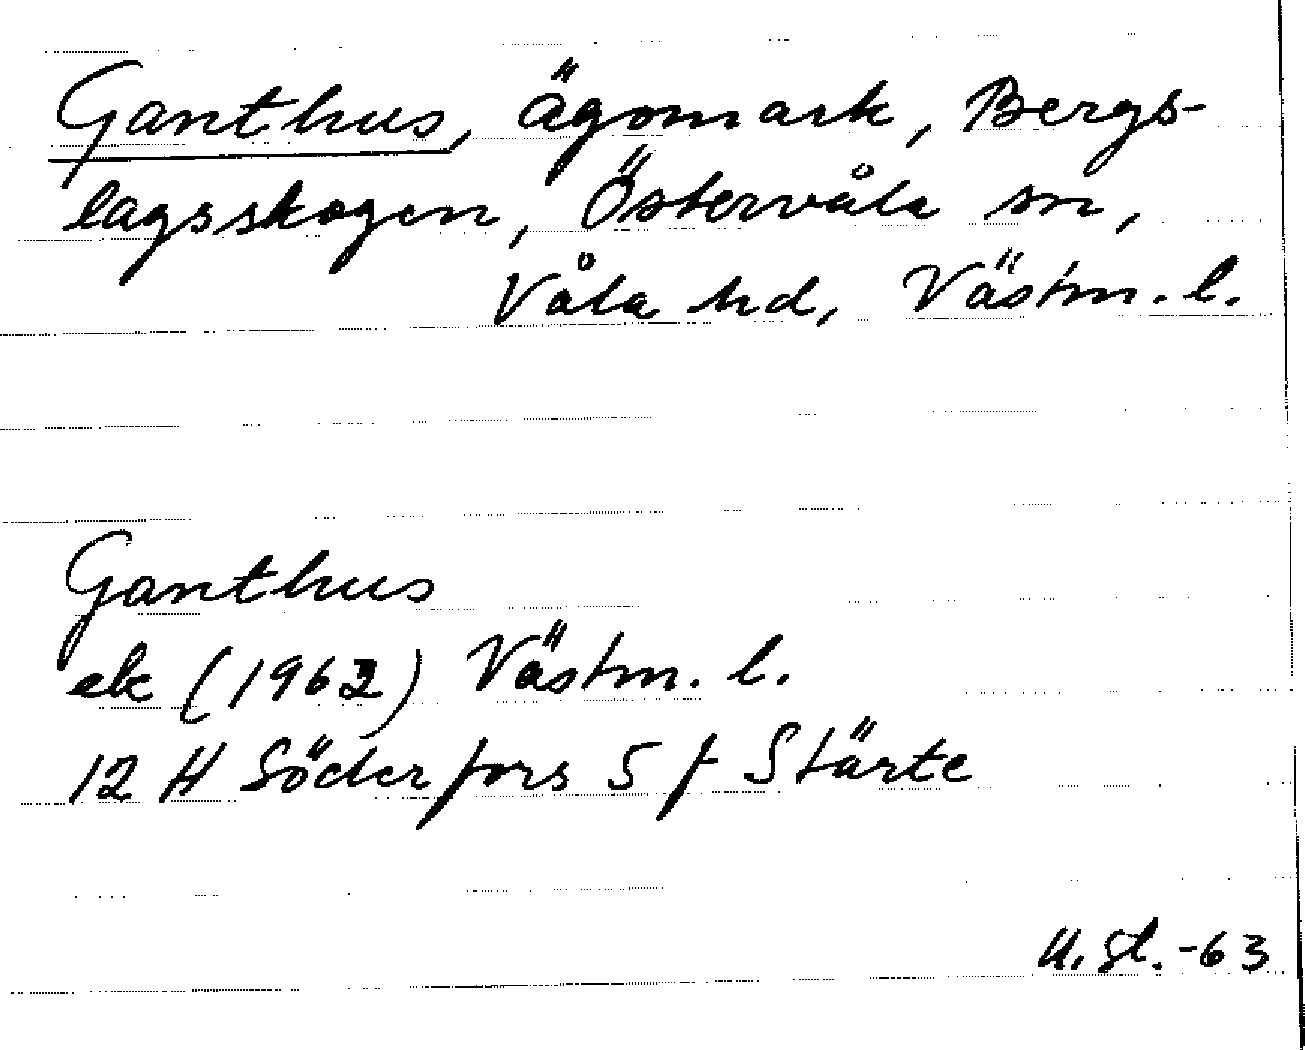 Ganthus, ägomark, Bergs-
lagsskogen, Östervåla sn,
Våla hd, Västm. l.
Ganthus
ek (1962) Västm. l.
12 H Söderfors 5 f Stärte
U. St. -63